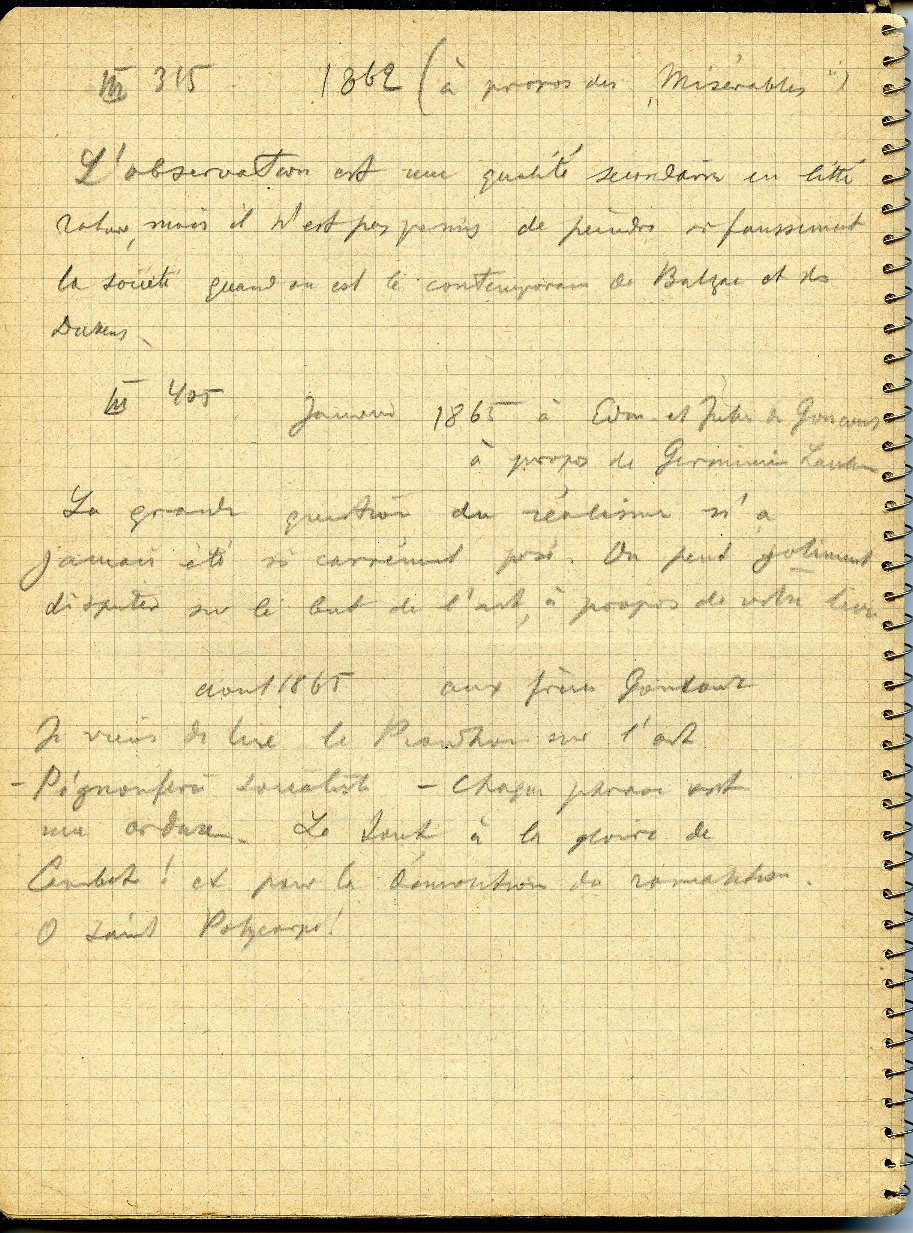 III 315 1862 (à propos des "Misérables")
L'observation est une qualité secondaire en litté
rature, mais il n'est pas permis de peindre si faussement
la société quand on est le contemporain de Balzac et de
Dickens.
III 405 Janvier 1865 à Edm. et Jules de Goncourt
à propos de Germinie Lacerteux
La grande question du réalisme n'a
jamais été si carrément posée. On peut joliment
disputer sur le but de l'art, à propos de votre livre
aout 1865 aux frères Goncourt
Je viens de lire le Proudhon sur l'art
- Pignouferie socialiste - Chaque phrase est
une ordure. Le tout à la gloire de
Courbet! et pour la démolition du romantisme.
O saint Polycarpe!